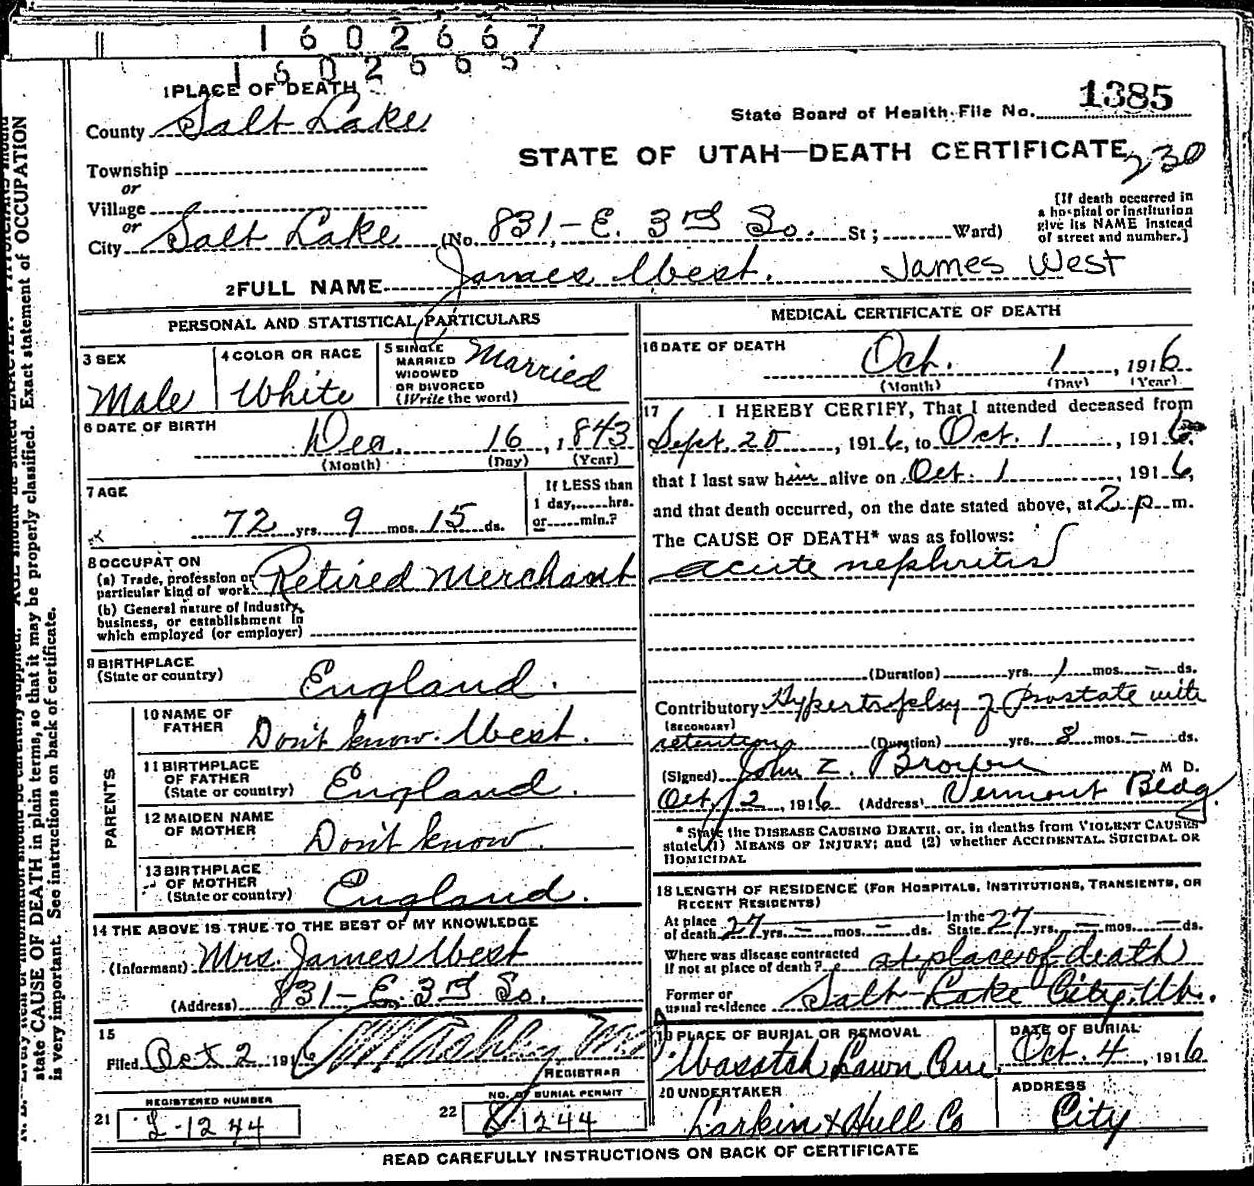 1602667
1602665
1 PLACE OF DEATH
County Salt Lake
State Board of Health File No. 1385
STATE OF UTAH—DEATH CERTIFICATE
230
Township
or
Village
or
City Salt Lake (No. 831 - E. 3rd So. St; Ward)
[If death occurred in
a hospital or institution
give its NAME instead
of street and number.]
2 FULL NAME James West. James West
PERSONAL AND STATISTICAL PARTICULARS
3 SEX
Male
4 COLOR OR RACE
White
5 SINGLE
MARRIED
WIDOWED
OR DIVORCED
(Write the word)
Married
6 DATE OF BIRTH
Dec. 16, 1843
(Month) (Day) (Year)
7 AGE
72 yrs. 9 mos. 15 ds.
If LESS than
1 day,......hrs.
or......min.?
8 OCCUPATION
(a) Trade, profession or
particular kind of work Retired Merchant
(b) General nature of Industry,
business, or establishment in
which employed (or employer)
9 BIRTHPLACE
(State or country) England.
PARENTS
10 NAME OF
FATHER Don't know. West.
11 BIRTHPLACE
OF FATHER
(State or country) England.
12 MAIDEN NAME
OF MOTHER Don't know
13 BIRTHPLACE
OF MOTHER
(State or country) England.
14 THE ABOVE IS TRUE TO THE BEST OF MY KNOWLEDGE
(Informant) Mrs. James West
(Address) 831 - E. 3rd So.
15
Filed Oct 2 1916
REGISTRAR
REGISTERED NUMBER
21 L-1244
NO. OF BURIAL PERMIT
22 1244
MEDICAL CERTIFICATE OF DEATH
16 DATE OF DEATH
Oct. 1, 1916
(Month) (Day) (Year)
17 I HEREBY CERTIFY, That I attended deceased from
Sept. 20, 1916, to Oct. 1, 1916.
that I last saw him alive on Oct. 1, 1916,
and that death occurred, on the date stated above, at 2 p. m.
The CAUSE OF DEATH* was as follows:
acute nephritis
(Duration) yrs. 1 mos. — ds.
Contributory Hypertrophy of prostate with
(SECONDARY)
retention (Duration) yrs. 8 mos. — ds.
(Signed) John Z. Brown M D.
Oct. 2, 1916 (Address) Vermont Bldg.
* State the DISEASE CAUSING DEATH, or, in deaths from VIOLENT CAUSES
state (1) MEANS OF INJURY; and (2) whether ACCIDENTAL, SUICIDAL OR
HOMICIDAL
18 LENGTH OF RESIDENCE (FOR HOSPITALS, INSTITUTIONS, TRANSIENTS, OR
RECENT RESIDENTS)
At place
of death 27 yrs. — mos. — ds. In the
State 27 yrs. — mos. — ds.
Where was disease contracted
if not at place of death? at place of death
Former or
usual residence Salt Lake City, Ut.
19 PLACE OF BURIAL OR REMOVAL
Wasatch Lawn
DATE OF BURIAL
Oct. 4, 1916
20 UNDERTAKER
Larkin & Hull Co
ADDRESS
City
READ CAREFULLY INSTRUCTIONS ON BACK OF CERTIFICATE
state CAUSE OF DEATH in plain terms, so that it may be properly classified. Exact statement of OCCUPATION
is very important. See instructions on back of certificate.